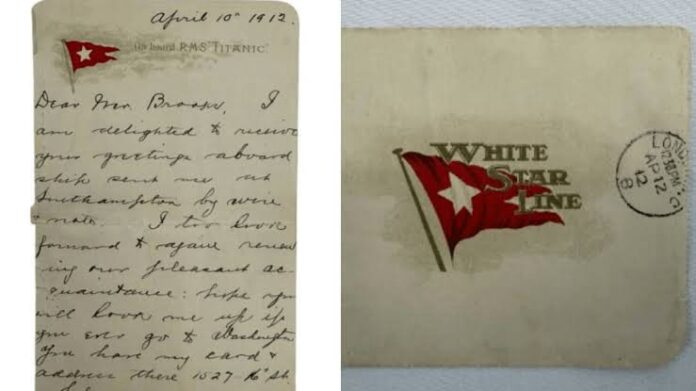 April 10th 1912.
On board R.M.S. "TITANIC".
Dear Mr. Brooks, I
am delighted to receive
your greetings aboard
ship sent me at
Southampton by wire
& note. I too look
forward to again renew
ing our pleasant ac
quaintance: hope you
will look me up if
you ever go to Washington
You have my card &
address there 1527-16th St.
WHITE
STAR
LINE
LOND
12.30PM
AP 12
12
8